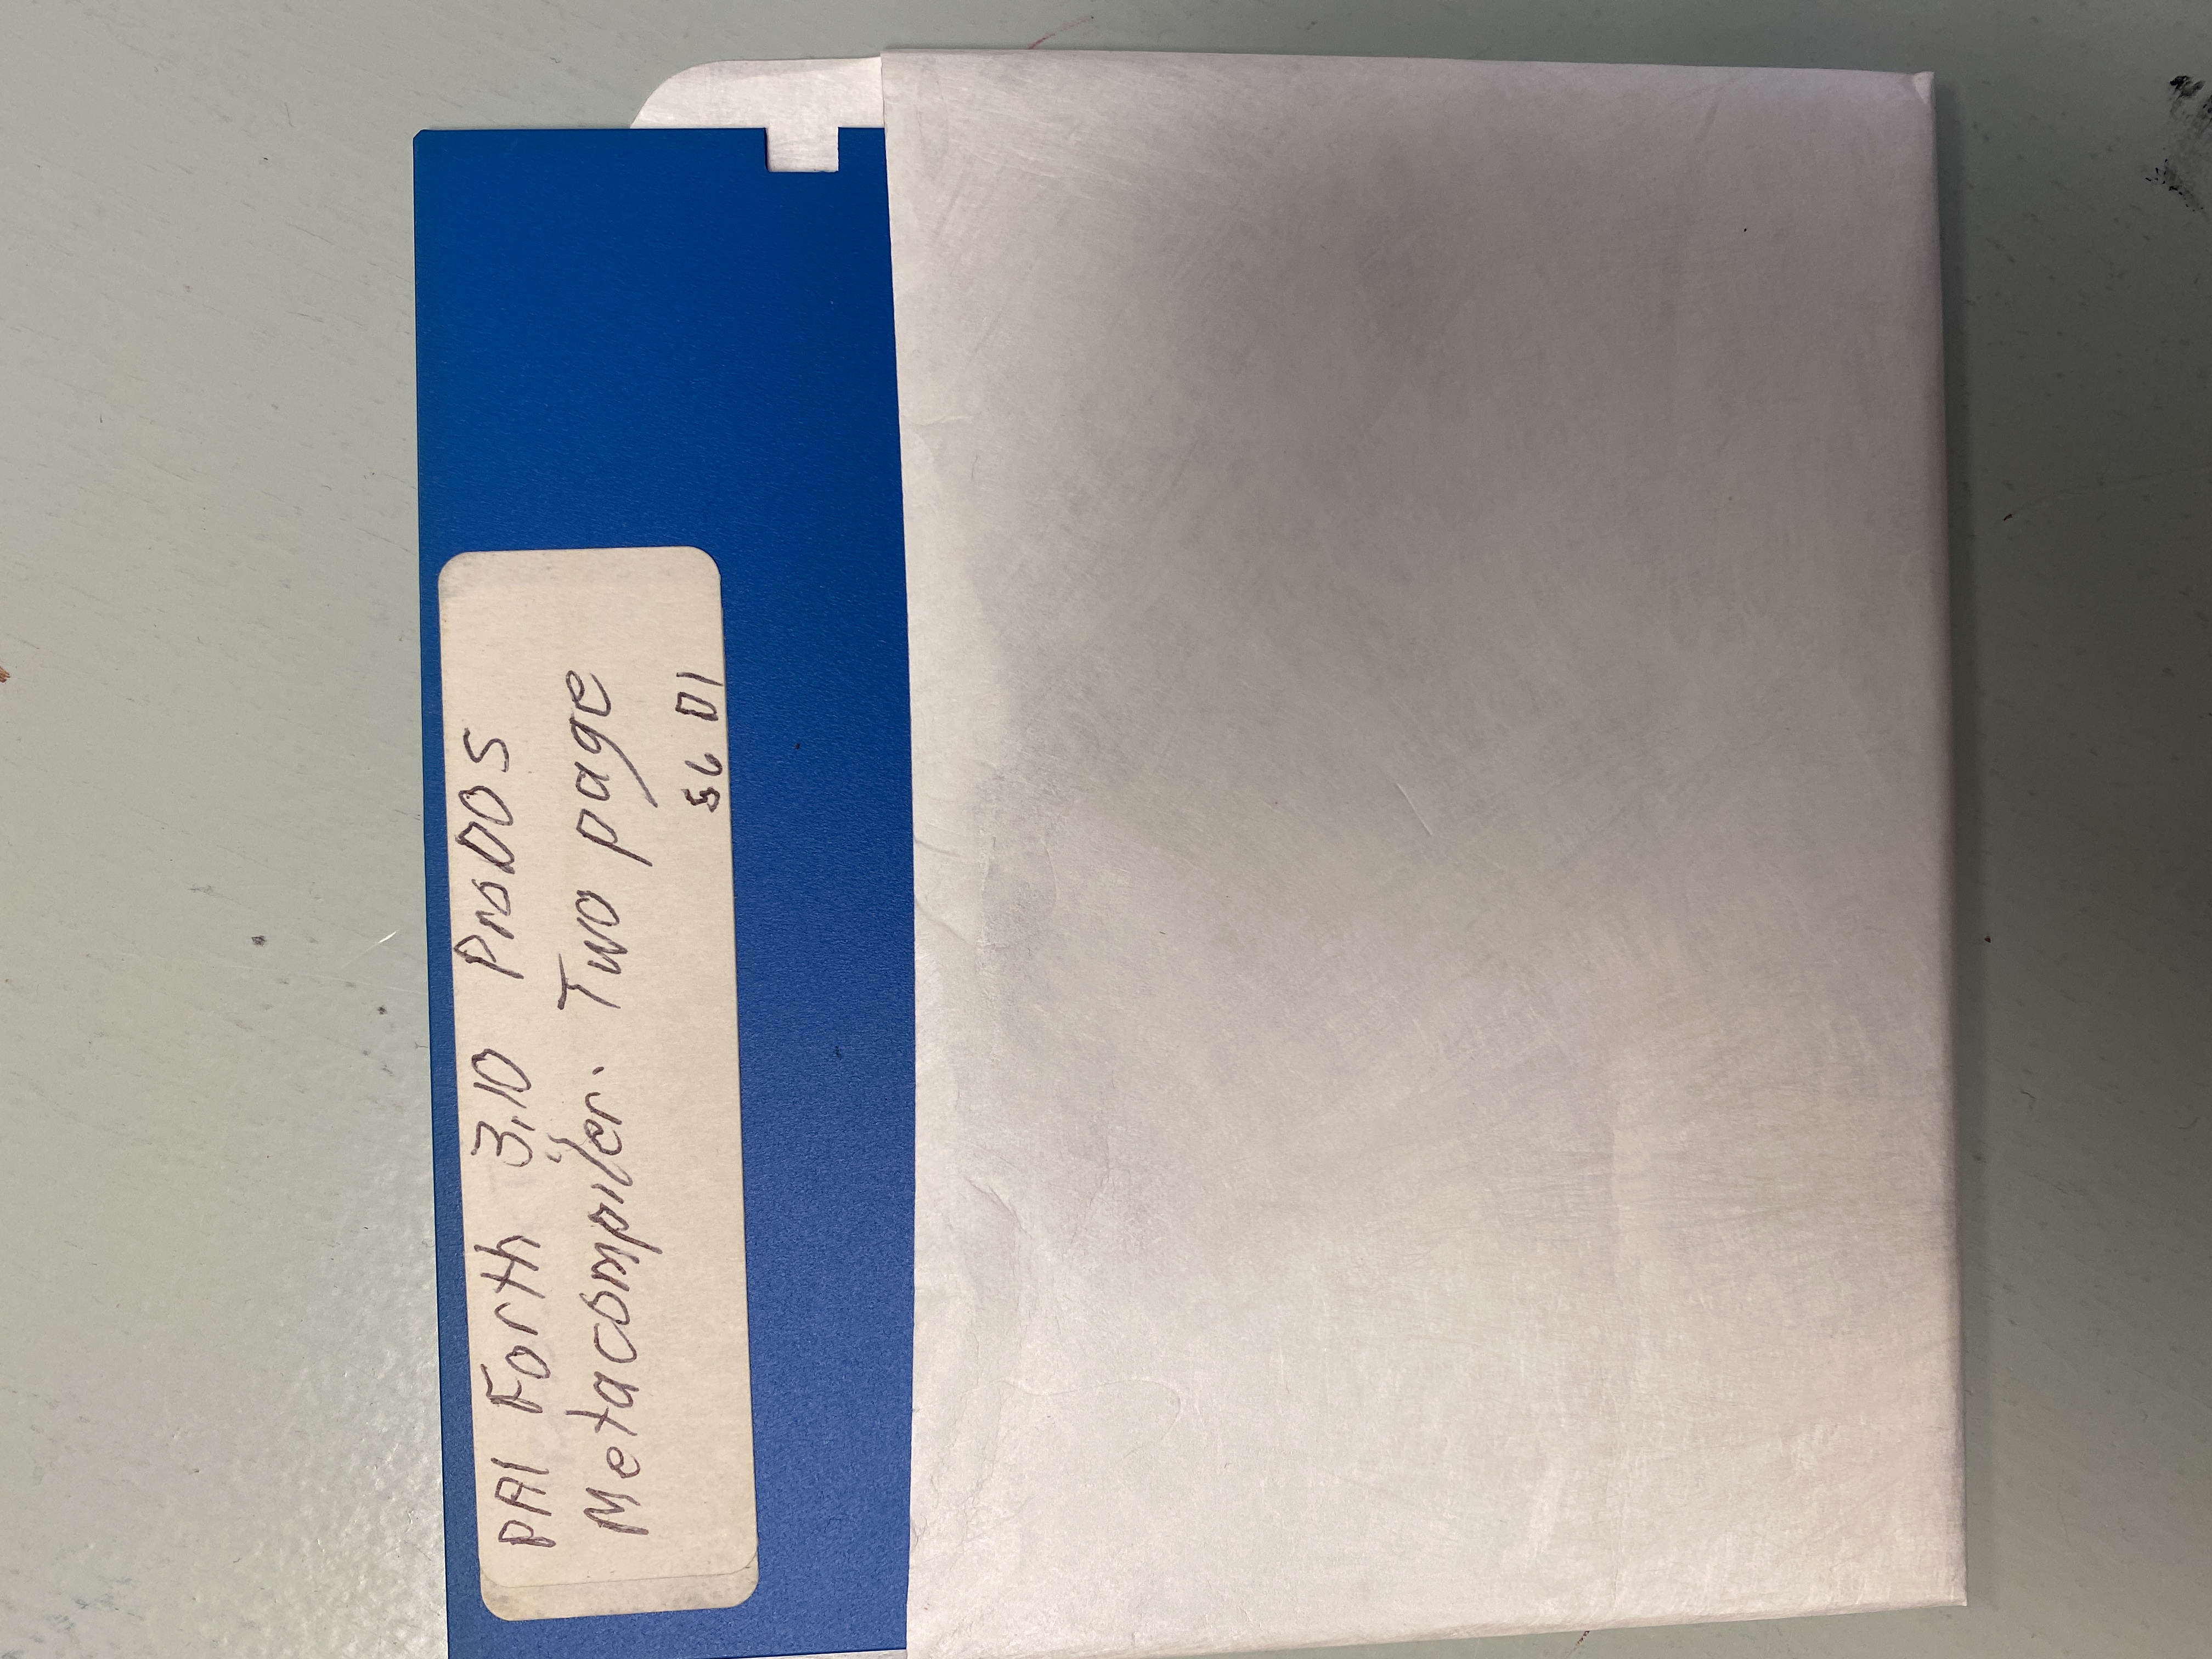 PAI Forth 3.10 ProDOS
Metacompiler. Two page
S6 D1